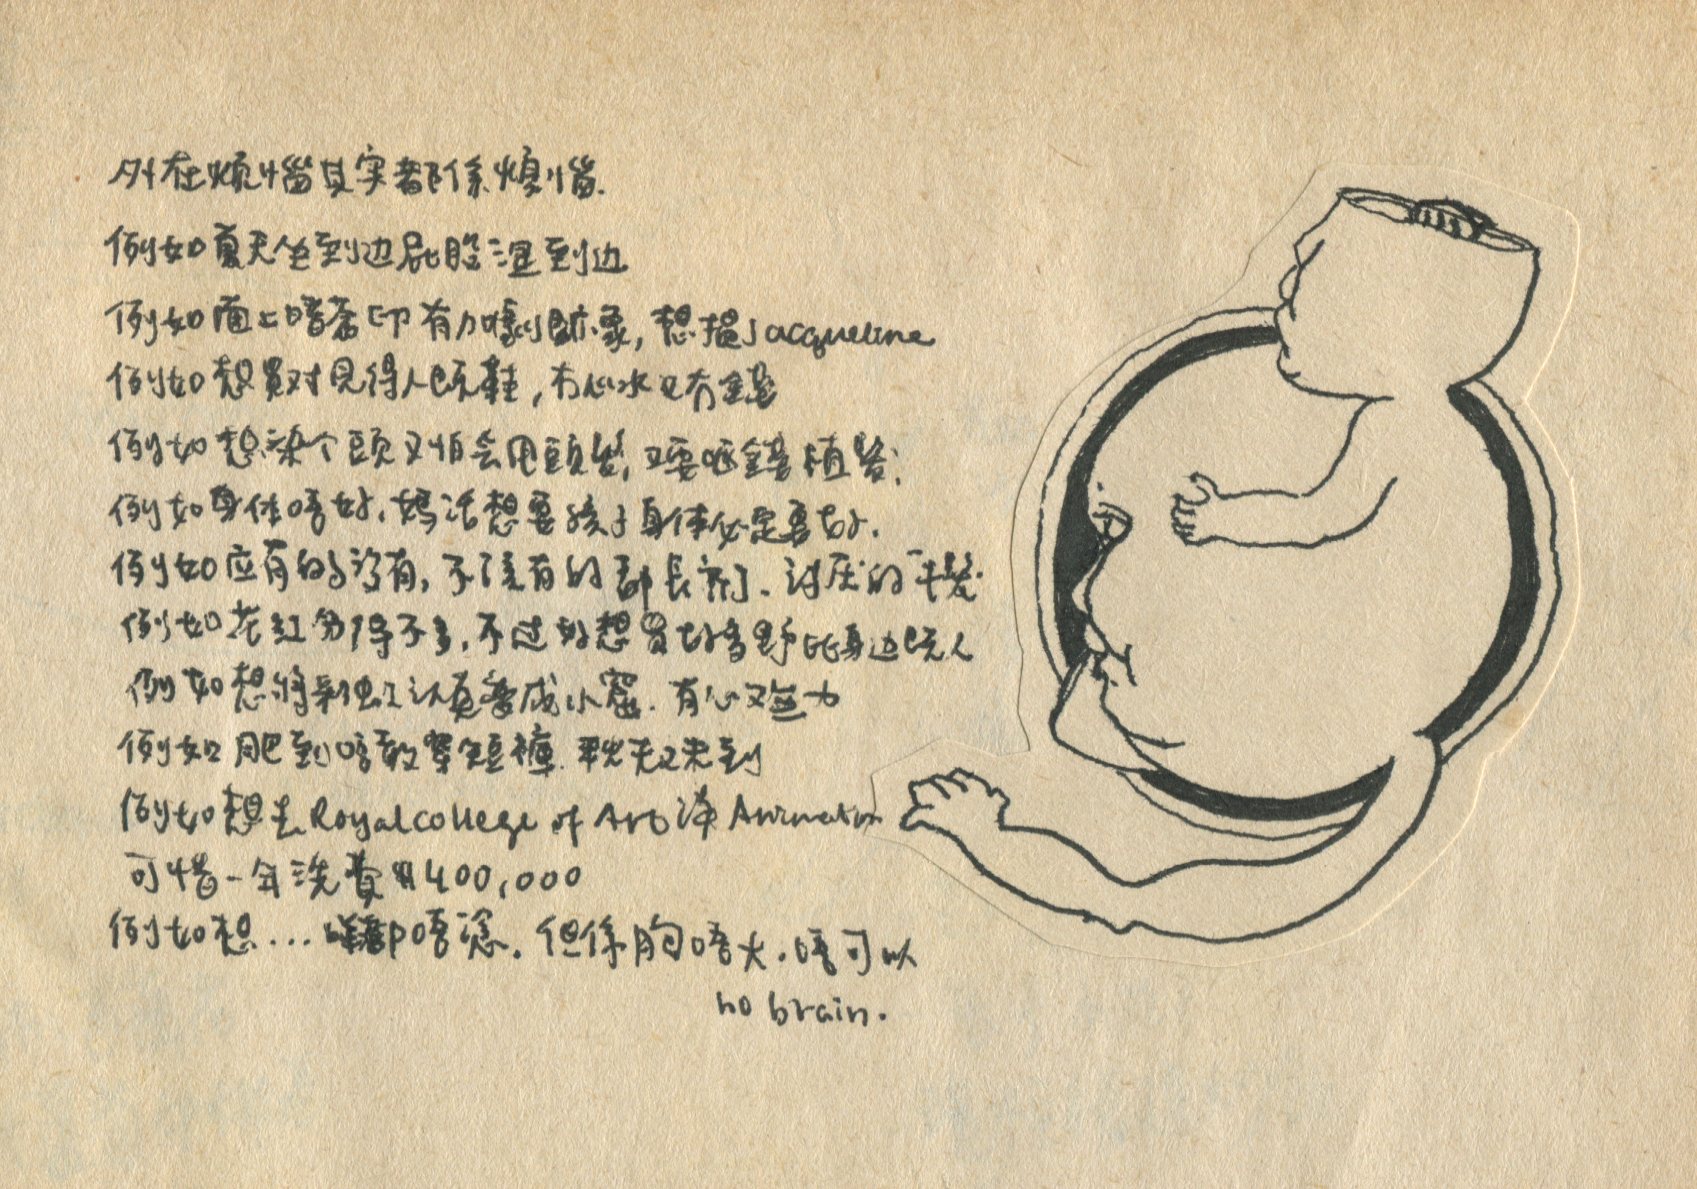 外在煩惱其实都係煩惱.
例如夏天坐到边屁股湿到边
例如面上暗瘡印有加劇跡象, 想搵Jacqueline
例如想買对見得人既鞋, 冇心水又冇錢
例如想染个頭又怕会甩頭髮, 又要嘥錢植髮;
例如身体唔好, 媽話想要孩子身体必定要好.
例如应有的沒有, 不該有的都長齐了. 討厌的干髮.
例如花紅分得不多, 不过好想買好多野比身边既人
例如想將彩虹认真畫成小窩. 有心又無力
例如肥到唔敢穿短褲. 熱天又未到
例如想去Royal college of Art 读 Animation
可惜一年洗費 $400,000
例如想... 咩都唔諗. 但係胸唔大. 唔可以
no brain.